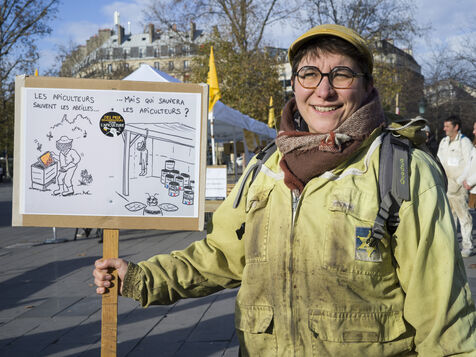 LES APICULTEURS
SAUVENT LES ABEILLES...
...MAIS QUI SAUVERA
LES APICULTEURS ?
L'APICULTURE